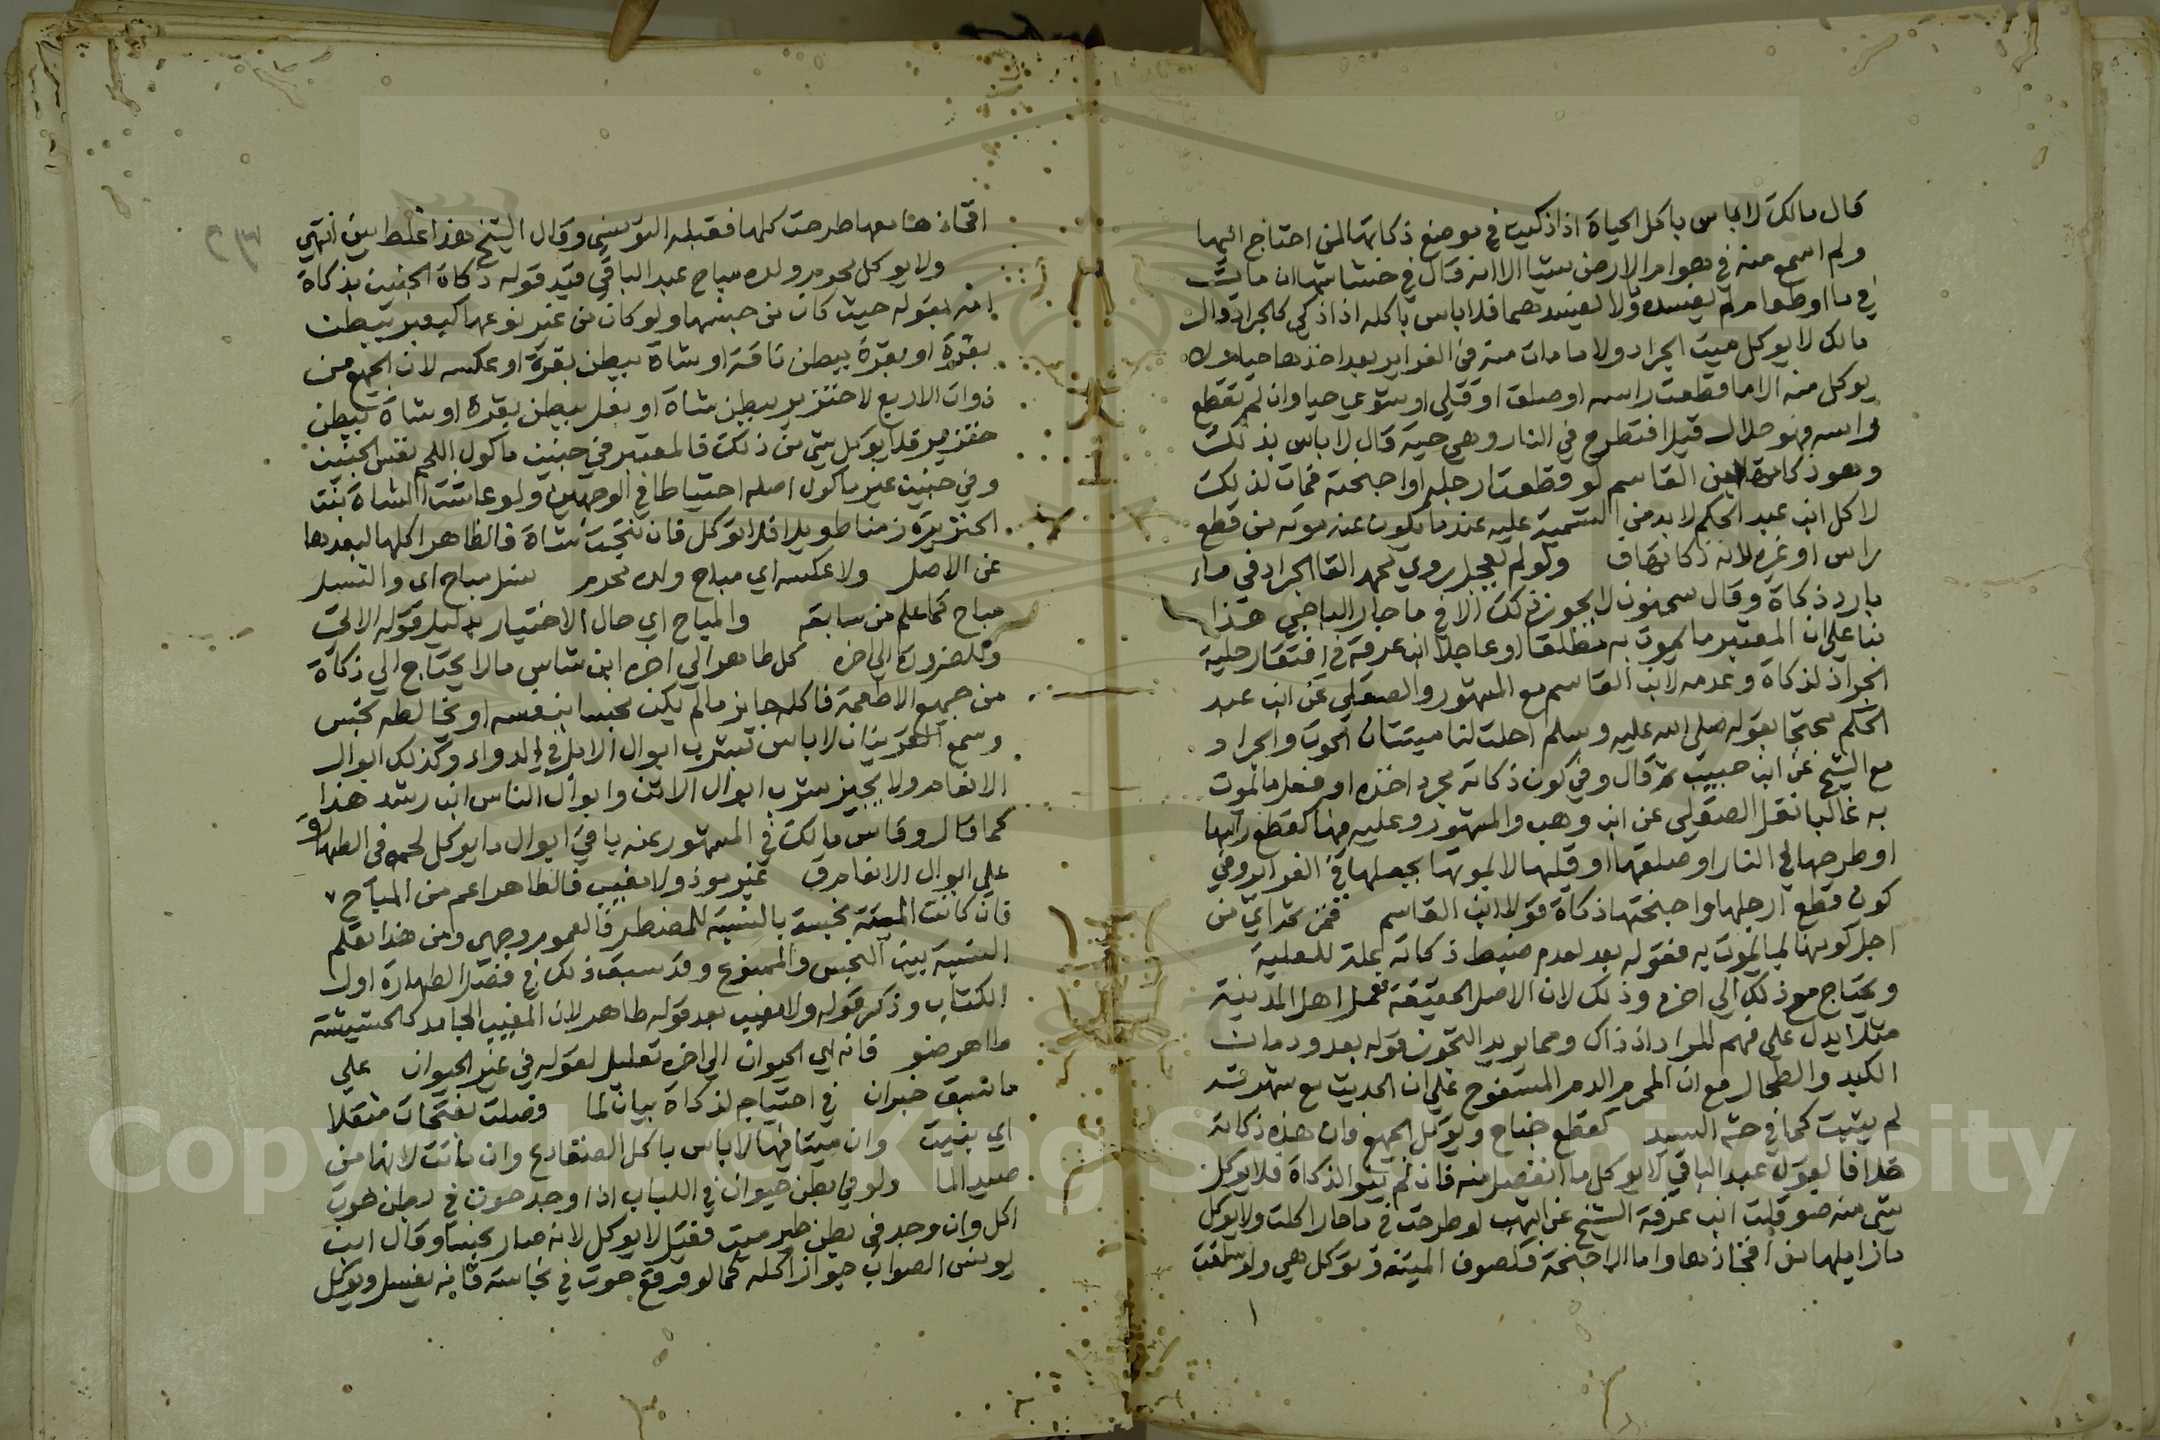 قال مالك لا باس باكل الحياة اذا ذكيت في موضع ذكاتها لمن احتاج اليها
ولم اسمع منه في هوام الارض شيئا الا انه قال في خشاشها ان ماتت
في ما او طعام لم يفسده ولا يفسدهما فلا باس باكله اذا ذكي كالجراد وقال
مالك لا يوكل ميت الجراد ولا ما مات منه في الغراير بعد اخذها حيا ولا
يوكل منه الا ما قطعت راسه او صلق او قلي او شوي حيا وان لم تقطع
راسه فهو حلال قيل افتطرح في النار وهي حية قال لا باس بذلك
وهو ذكاتها ابن القاسم لو قطعت ارجله او اجنحته فمات لذلك
لاكل ابن عبد الحكم لا بد من التسمية عليه عند ما يكون عنه موته من قطع
راس او غيره لانه ذكاتها ولو لم يعجل روي محمد القا الجراد في ماء
بارد ذكاة وقال سحنون لا يجوز ذلك الا في ما حار الباجي هذا
بنا علي ان المعتبر ما يموت به مطلقا او عاجلا ابن عرفة في افتقار حلية
الجراد لذكاة وعدمه لابن القاسم مع المشهور والصقلي عن ابن عبد
الحكم محتجا بقوله صلي الله عليه وسلم احلت لنا ميتتان الحوت والجراد
مع الشيخ عن ابن حبيب قال وفي كون ذكاته مجرد اخذه او فعل ما تموت
به غالبا نقل الصقلي عن ابن وهب والمشهور وعليه فيها كقطع راسها
او طرحها في النار او صلقها او قليها لا بموتها بجعلها في الغراير وفي
كون قطع ارجلها واجنحتها ذكاة قولا ابن القاسم فمن ثم اي من
اجل كونها لما يموت به فقوله بعد لعدم ضبط ذكاته علة للعلية
ويحتاج مع ذلك الي اخره وذلك لان الاصل الحقيقة فعمل اهل المدينة
مثلا يدل علي فهم المراد اذ ذاك ومما يويد التجوز قوله بعد ودمان
الكبد والطحال مع ان المحرم الدم المسفوح علي ان الحديث مع شهرته
لم يثبت كما في حش السيد كقطع جناح ويوكل الجميع فان هذه ذكاته
خلافا لقول عبد الباقي لا يوكل ما انفصل منه فان لم ينو الذكاة فلا يوكل
شي منه ضو قلت ابن عرفة الشيخ عن اشهب لو طرحت في ما حار اكلت ولا يوكل
ما زايلها من افخاذها واما الاجنحة فكصوف الميتة وتوكل هي ولو سلقت
افخاذها معها طرحت كلها فقبله التونسي وقال الشيخ هذا غلط بين انتهي
ولا يوكل محرم ولده مباح عبد الباقي قيد قوله ذكاة الجنين بذكاة
امه بقوله حيث كان من جنسها ولو كان من غير نوعها كبعير ببطن
بقرة او بقرة ببطن ناقة او شاة ببطن بقرة او عكسه لان الجميع من
ذوات الاربع لا خنزير ببطن شاة او بغل ببطن بقرة او شاة ببطن
خنزير فلا يوكل شي من ذلك فالمعتبر في جنين ماكول اللحم نفس الجنين
وفي جنين غير ماكول اصله احتياطا في الوجهين ولو عاشت الشاة بنت
الخنزيرة زمنا طويلا فلا توكل فان نتجت شاة فالظاهر اكلها لبعدها
عن الاصل ولا عكسه اي مباح ولده محرم نسل مباح اي والنسل
مباح كما علم من سابقه والمباح اي حال الاختيار بدليل قوله الاتي
وللضرورة الي اخره كل طاهر الي اخره ابن شاس ما لا يحتاج الي ذكاة
من جميع الاطعمة فاكله جايز ما لم يكن نجسا بنفسه او يخالطه نجس
وسمع القرينان لا باس بشرب ابوال الابل في الدواء وكذلك ابوال
الانعام ولا يجيز شرب ابوال الاتن وابوال الناس ابن رشد هذا
كما قال وقاس مالك في المشهور عنه باقي ابوال ما يوكل لحمه في الطهارة
علي ابوال الانعام ق غير موذ ولا مغيب فالظاهر اعم من المباح
فان كانت الميتة نجسة بالنسبة للمضطر فالعموم وجهي ومن هذا تعلم
النسبة بين النجس والممنوع وقد سبق ذلك في فضل الطهارة اول
الكتاب وذكر قوله ولا مغيب بعد قوله طاهر لان المغيب الجامد كالحشيشة
طاهر ضو فانه اي الحيوان الي اخره تعليل لقوله في غير الحيوان علي
ما سبق خبران في احتياجه لذكاة بيان لما وصلت بفتحات مثقلا
اي بقيت وان ميتا فيها لا باس باكل الضفادع وان ماتت لانها من
صيد الما ولو في بطن حيوان في اللباب اذا وجد حوت في بطن حوت
اكل وان وجد في بطن طير ميت فقيل لا يوكل لانه صار نجسا وقال ابن
يونس الصواب جواز اكله كما لو وقع حوت في نجاسة فانه يغسل ويوكل